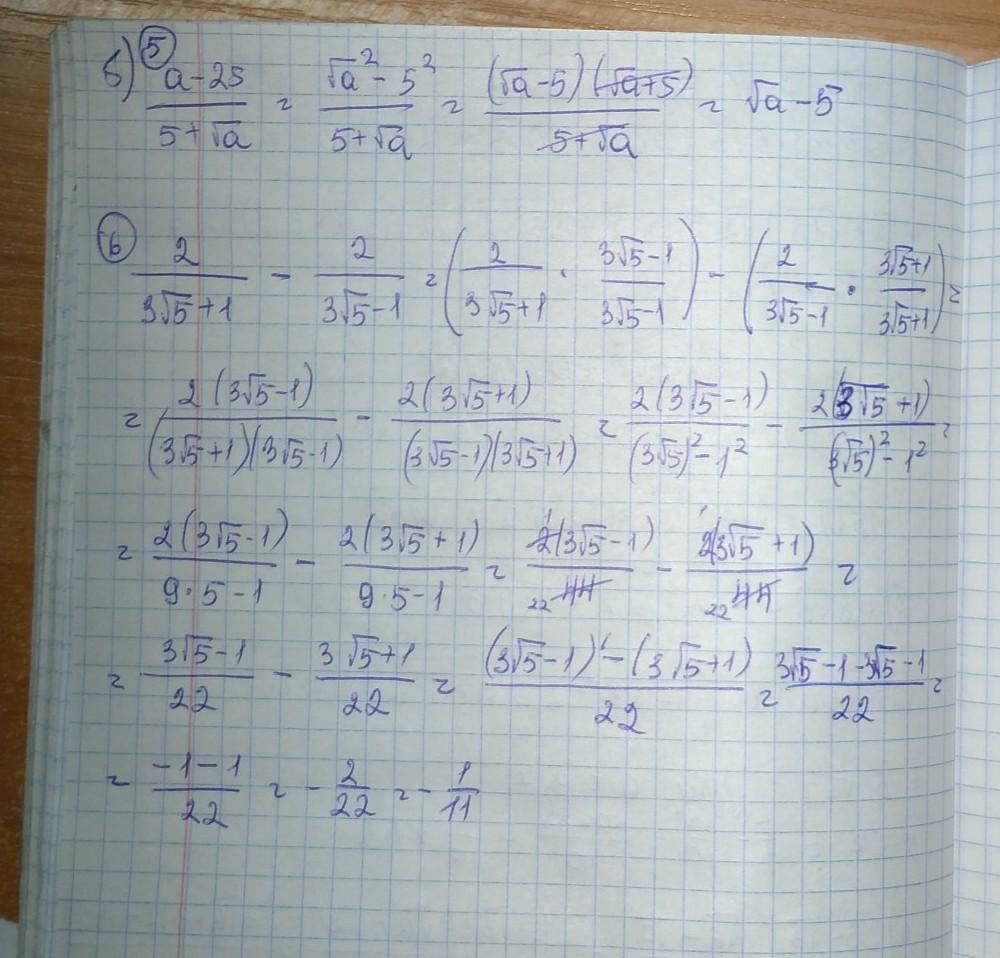 б) ⑤ (a-25)/(5+√a) = (√a² - 5²)/(5+√a) = ((√a-5)(√a+5))/(5+√a) = √a - 5
⑥ 2/(3√5+1) - 2/(3√5-1) = (2/(3√5+1) · (3√5-1)/(3√5-1)) - (2/(3√5-1) · (3√5+1)/(3√5+1)) =
= (2(3√5-1))/((3√5+1)(3√5-1)) - (2(3√5+1))/((3√5-1)(3√5+1)) = (2(3√5-1))/((3√5)²-1²) - (2(3√5+1))/((3√5)²-1²) =
= (2(3√5-1))/(9·5-1) - (2(3√5+1))/(9·5-1) = (2 1 (3√5-1))/(22 44) - (2 1 (3√5+1))/(22 44) =
= (3√5-1)/22 - (3√5+1)/22 = ((3√5-1) - (3√5+1))/22 = (3√5-1-3√5-1)/22 =
= (-1-1)/22 = -2/22 = -1/11